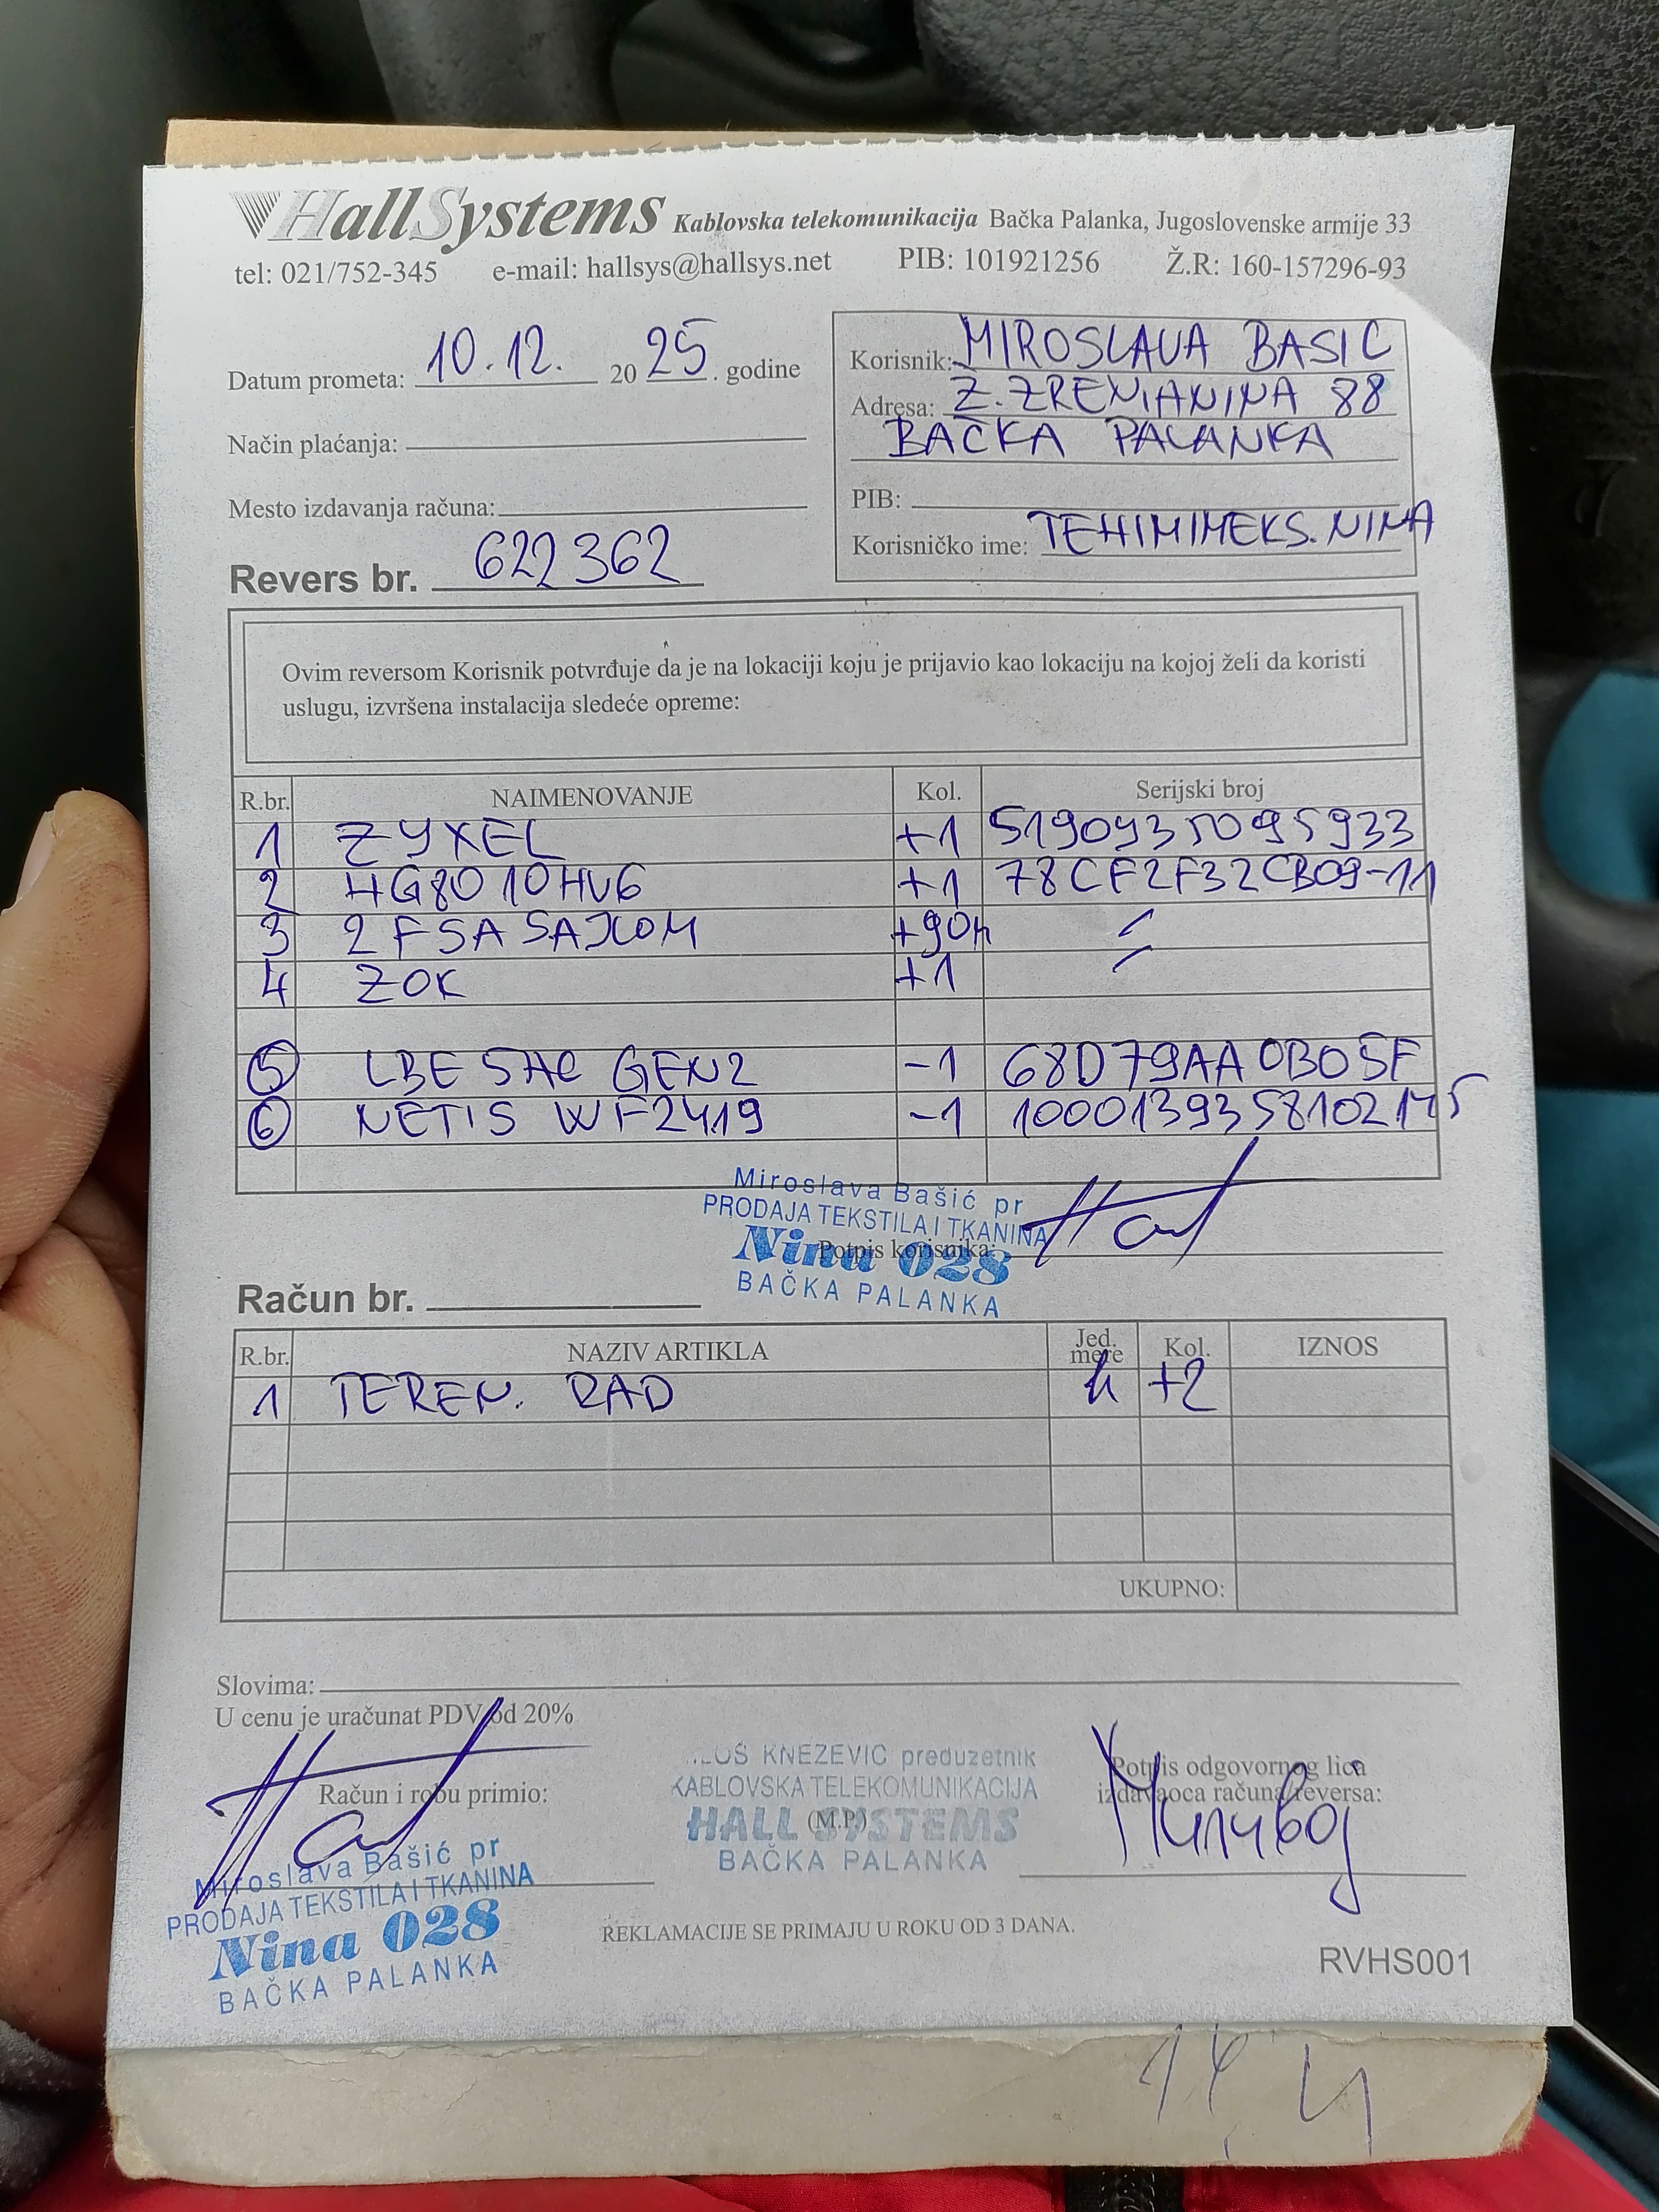 HallSystems Kablovska telekomunikacija Bačka Palanka, Jugoslovenske armije 33
tel: 021/752-345 e-mail: hallsys@hallsys.net PIB: 101921256 Ž.R: 160-157296-93
Datum prometa: 10.12. 2025. godine
Način plaćanja:
Mesto izdavanja računa:
Revers br. 622362
Korisnik: MIROSLAVA BASIC
Adresa: Z. ZRENJANINA 88
BAČKA PALANKA
PIB:
Korisničko ime: TEHIMIMEKS.NINA
Ovim reversom Korisnik potvrđuje da je na lokaciji koju je prijavio kao lokaciju na kojoj želi da koristi
uslugu, izvršena instalacija sledeće opreme:
R.br. NAIMENOVANJE Kol. Serijski broj
1 ZYXEL +1 S190935095933
2 HG8010HV6 +1 78CF2F32CB09-11
3 2FSA SAJLOM +90m /
4 ZOK +1 /
5 LBE 5AC GEN2 -1 68D79AA0B05F
6 NETIS WF2419 -1 1000139358102145
Miroslava Bašić pr
PRODAJA TEKSTILA I TKANINA
Nina 028
BAČKA PALANKA
Potpis korisnika:
Račun br.
R.br. NAZIV ARTIKLA Jed. mere Kol. IZNOS
1 TEREN. RAD h +2
UKUPNO:
Slovima:
U cenu je uračunat PDV od 20%
Račun i robu primio:
Miroslava Bašić pr
PRODAJA TEKSTILA I TKANINA
Nina 028
BAČKA PALANKA
KNEZEVIC preduzetnik
KABLOVSKA TELEKOMUNIKACIJA
HALL SYSTEMS
(M.P.)
BAČKA PALANKA
Potpis odgovornog lica
izdavaoca računa/reversa:
REKLAMACIJE SE PRIMAJU U ROKU OD 3 DANA.
RVHS001